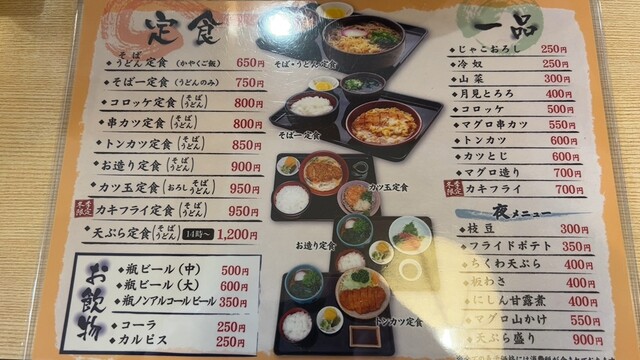 定食
そば・うどん定食 (かやくご飯) 650円
そば一定食 (うどんのみ) 750円
コロッケ定食 (そば・うどん) 800円
串カツ定食 (そば・うどん) 800円
トンカツ定食 (そば・うどん) 850円
お造り定食 (そば・うどん) 900円
カツ玉定食 (おろしそば・うどん) 950円
冬季限定 カキフライ定食 (そば・うどん) 950円
天ぷら定食 (そば・うどん) 14時〜 1,200円
お飲物
瓶ビール (中) 500円
瓶ビール (大) 600円
瓶ノンアルコールビール 350円
コーラ 250円
カルピス 250円
そば・うどん定食
そば一定食
カツ玉定食
お造り定食
トンカツ定食
一品
じゃこおろし 250円
冷奴 250円
山菜 300円
月見とろろ 400円
コロッケ 500円
マグロ串カツ 550円
トンカツ 600円
カツとじ 600円
マグロ造り 700円
冬季限定 カキフライ 700円
夜メニュー
枝豆 300円
フライドポテト 350円
ちくわ天ぷら 400円
板わさ 400円
にしん甘露煮 400円
マグロ山かけ 550円
天ぷら盛り 900円